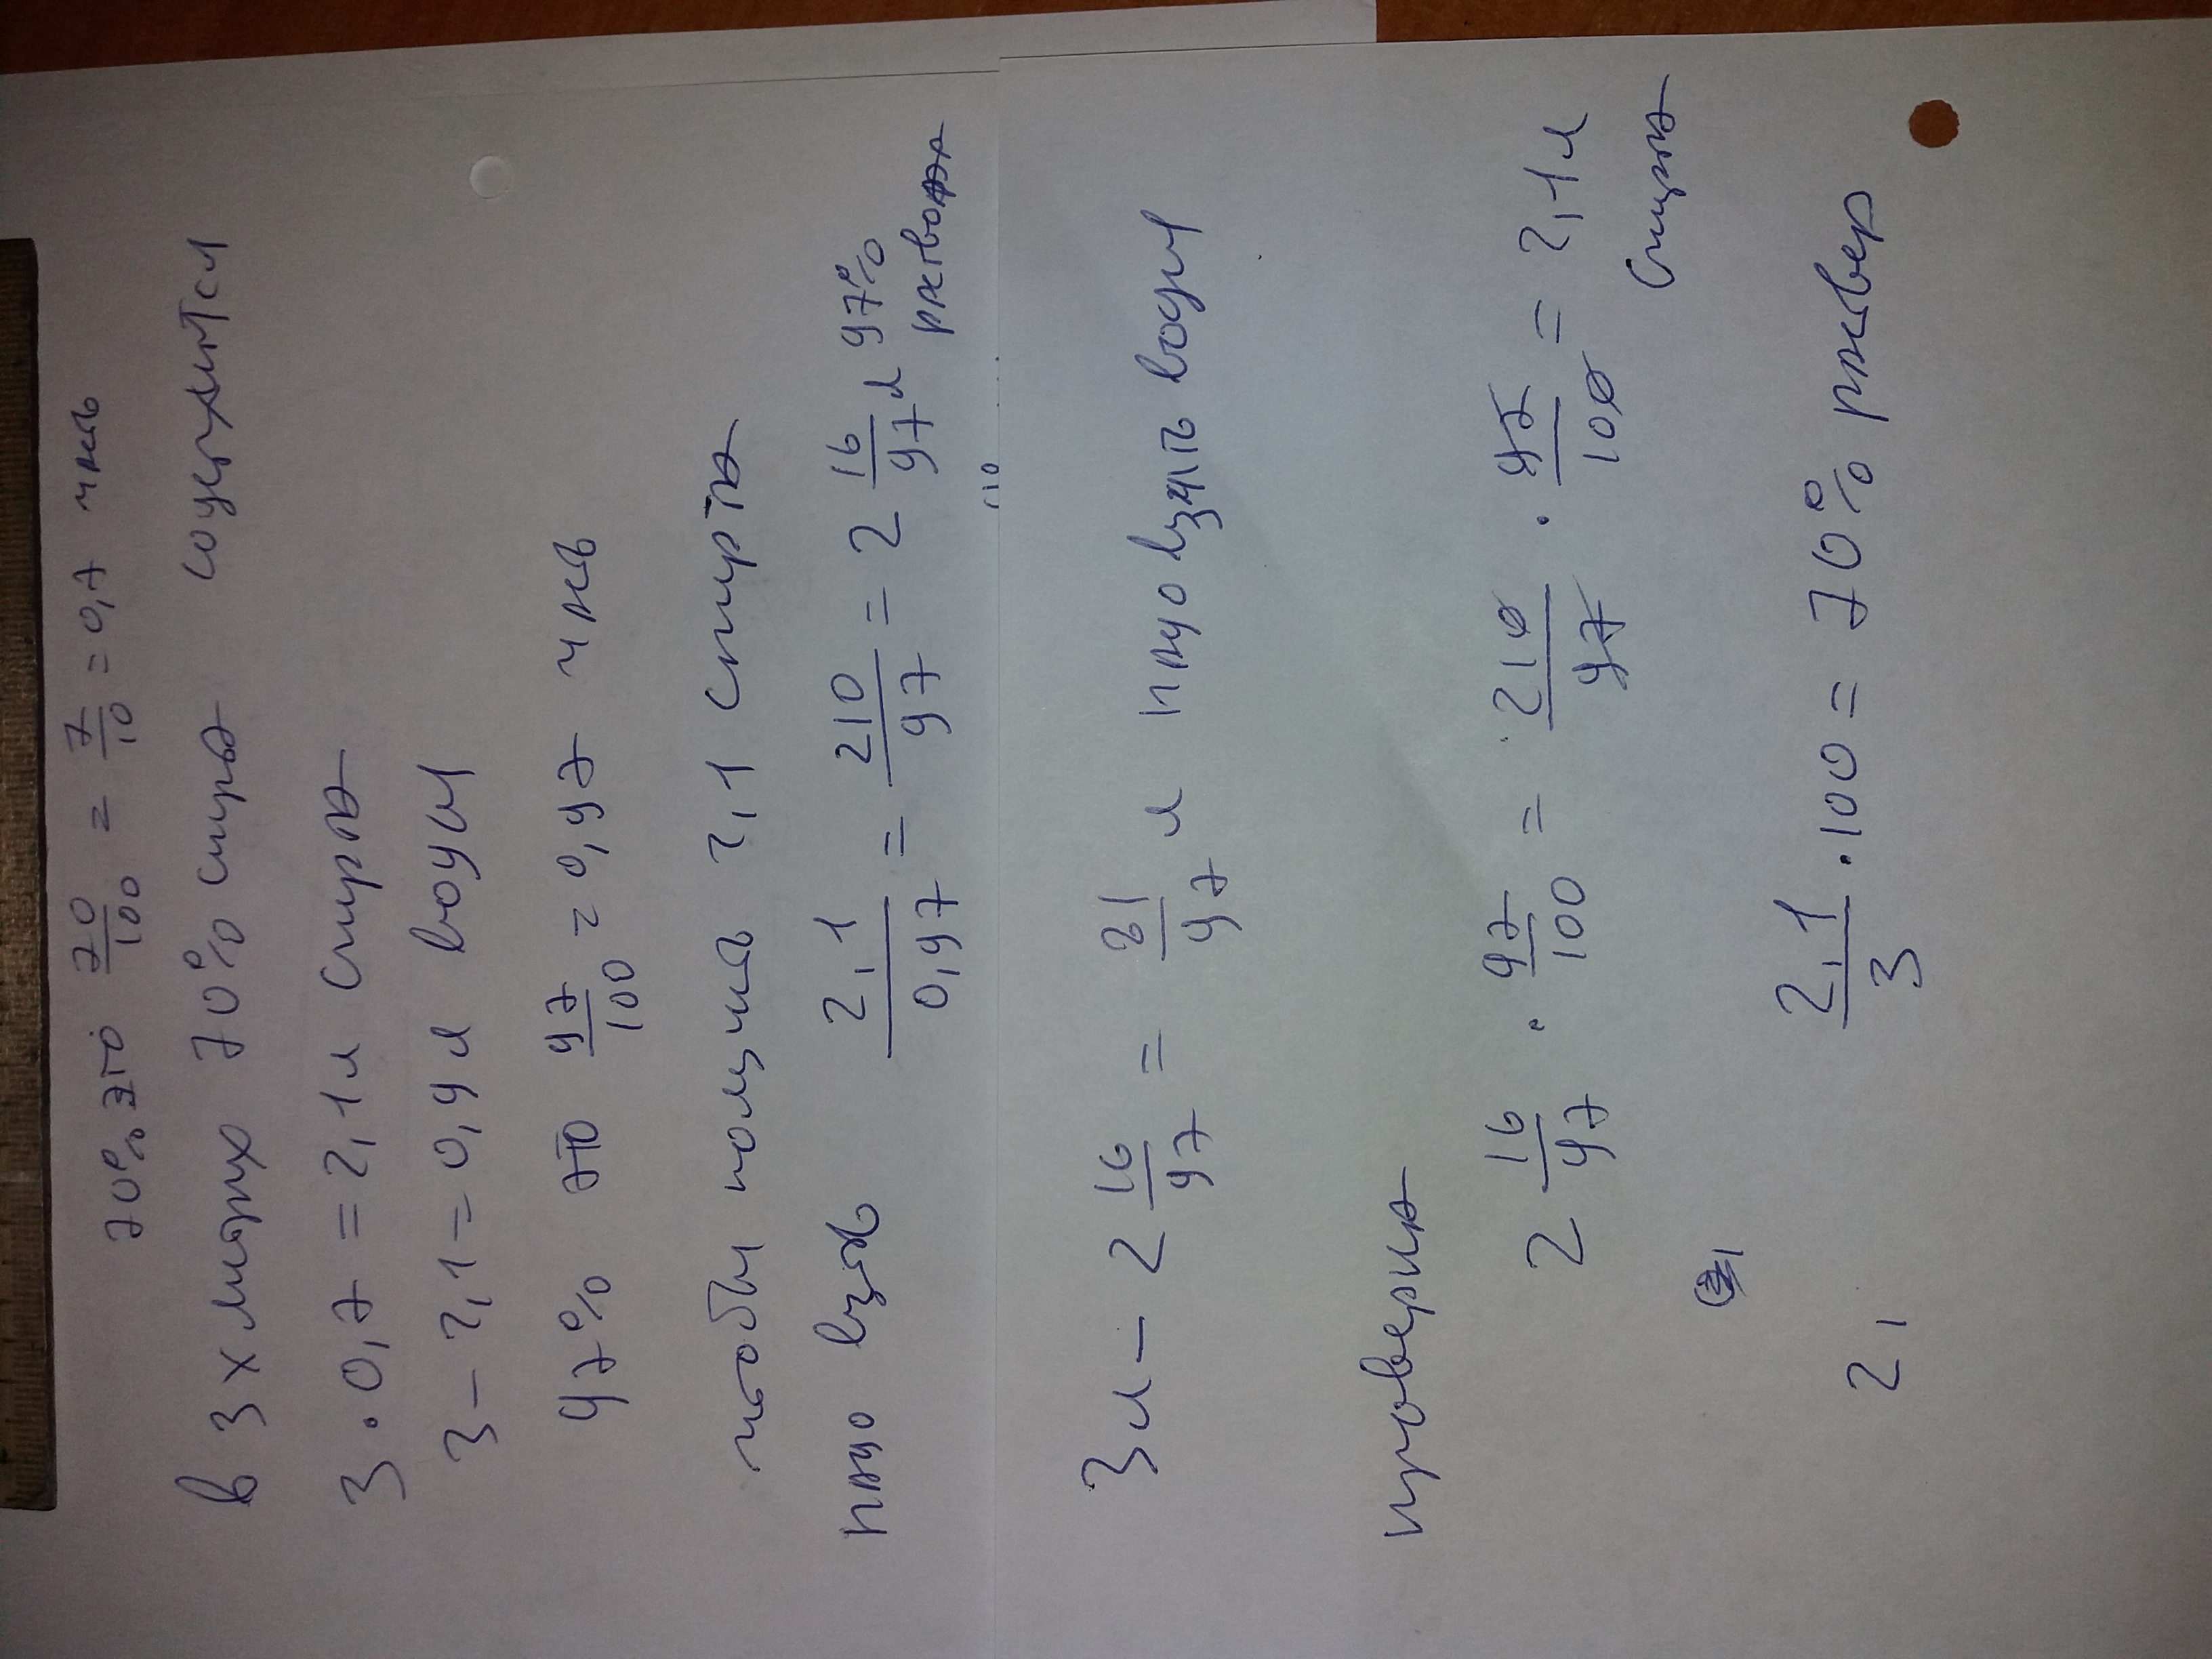 70% это 70/100 = 7/10 = 0,7 часть
в 3х литрах 70% спирта содержится
3 · 0,7 = 2,1 л спирта
3 - 2,1 = 0,9 л воды
97% это 97/100 = 0,97 часть
чтобы получить 2,1 спирта
надо взять 2,1/0,97 = 210/97 = 2 16/97 л 97% раствора
3л - 2 16/97 = 81/97 л надо взять воды
проверка
2 16/97 · 97/100 = 210/97 · 97/100 = 2,1 л
спирта
2, 2,1/3 · 100 = 70% раствор